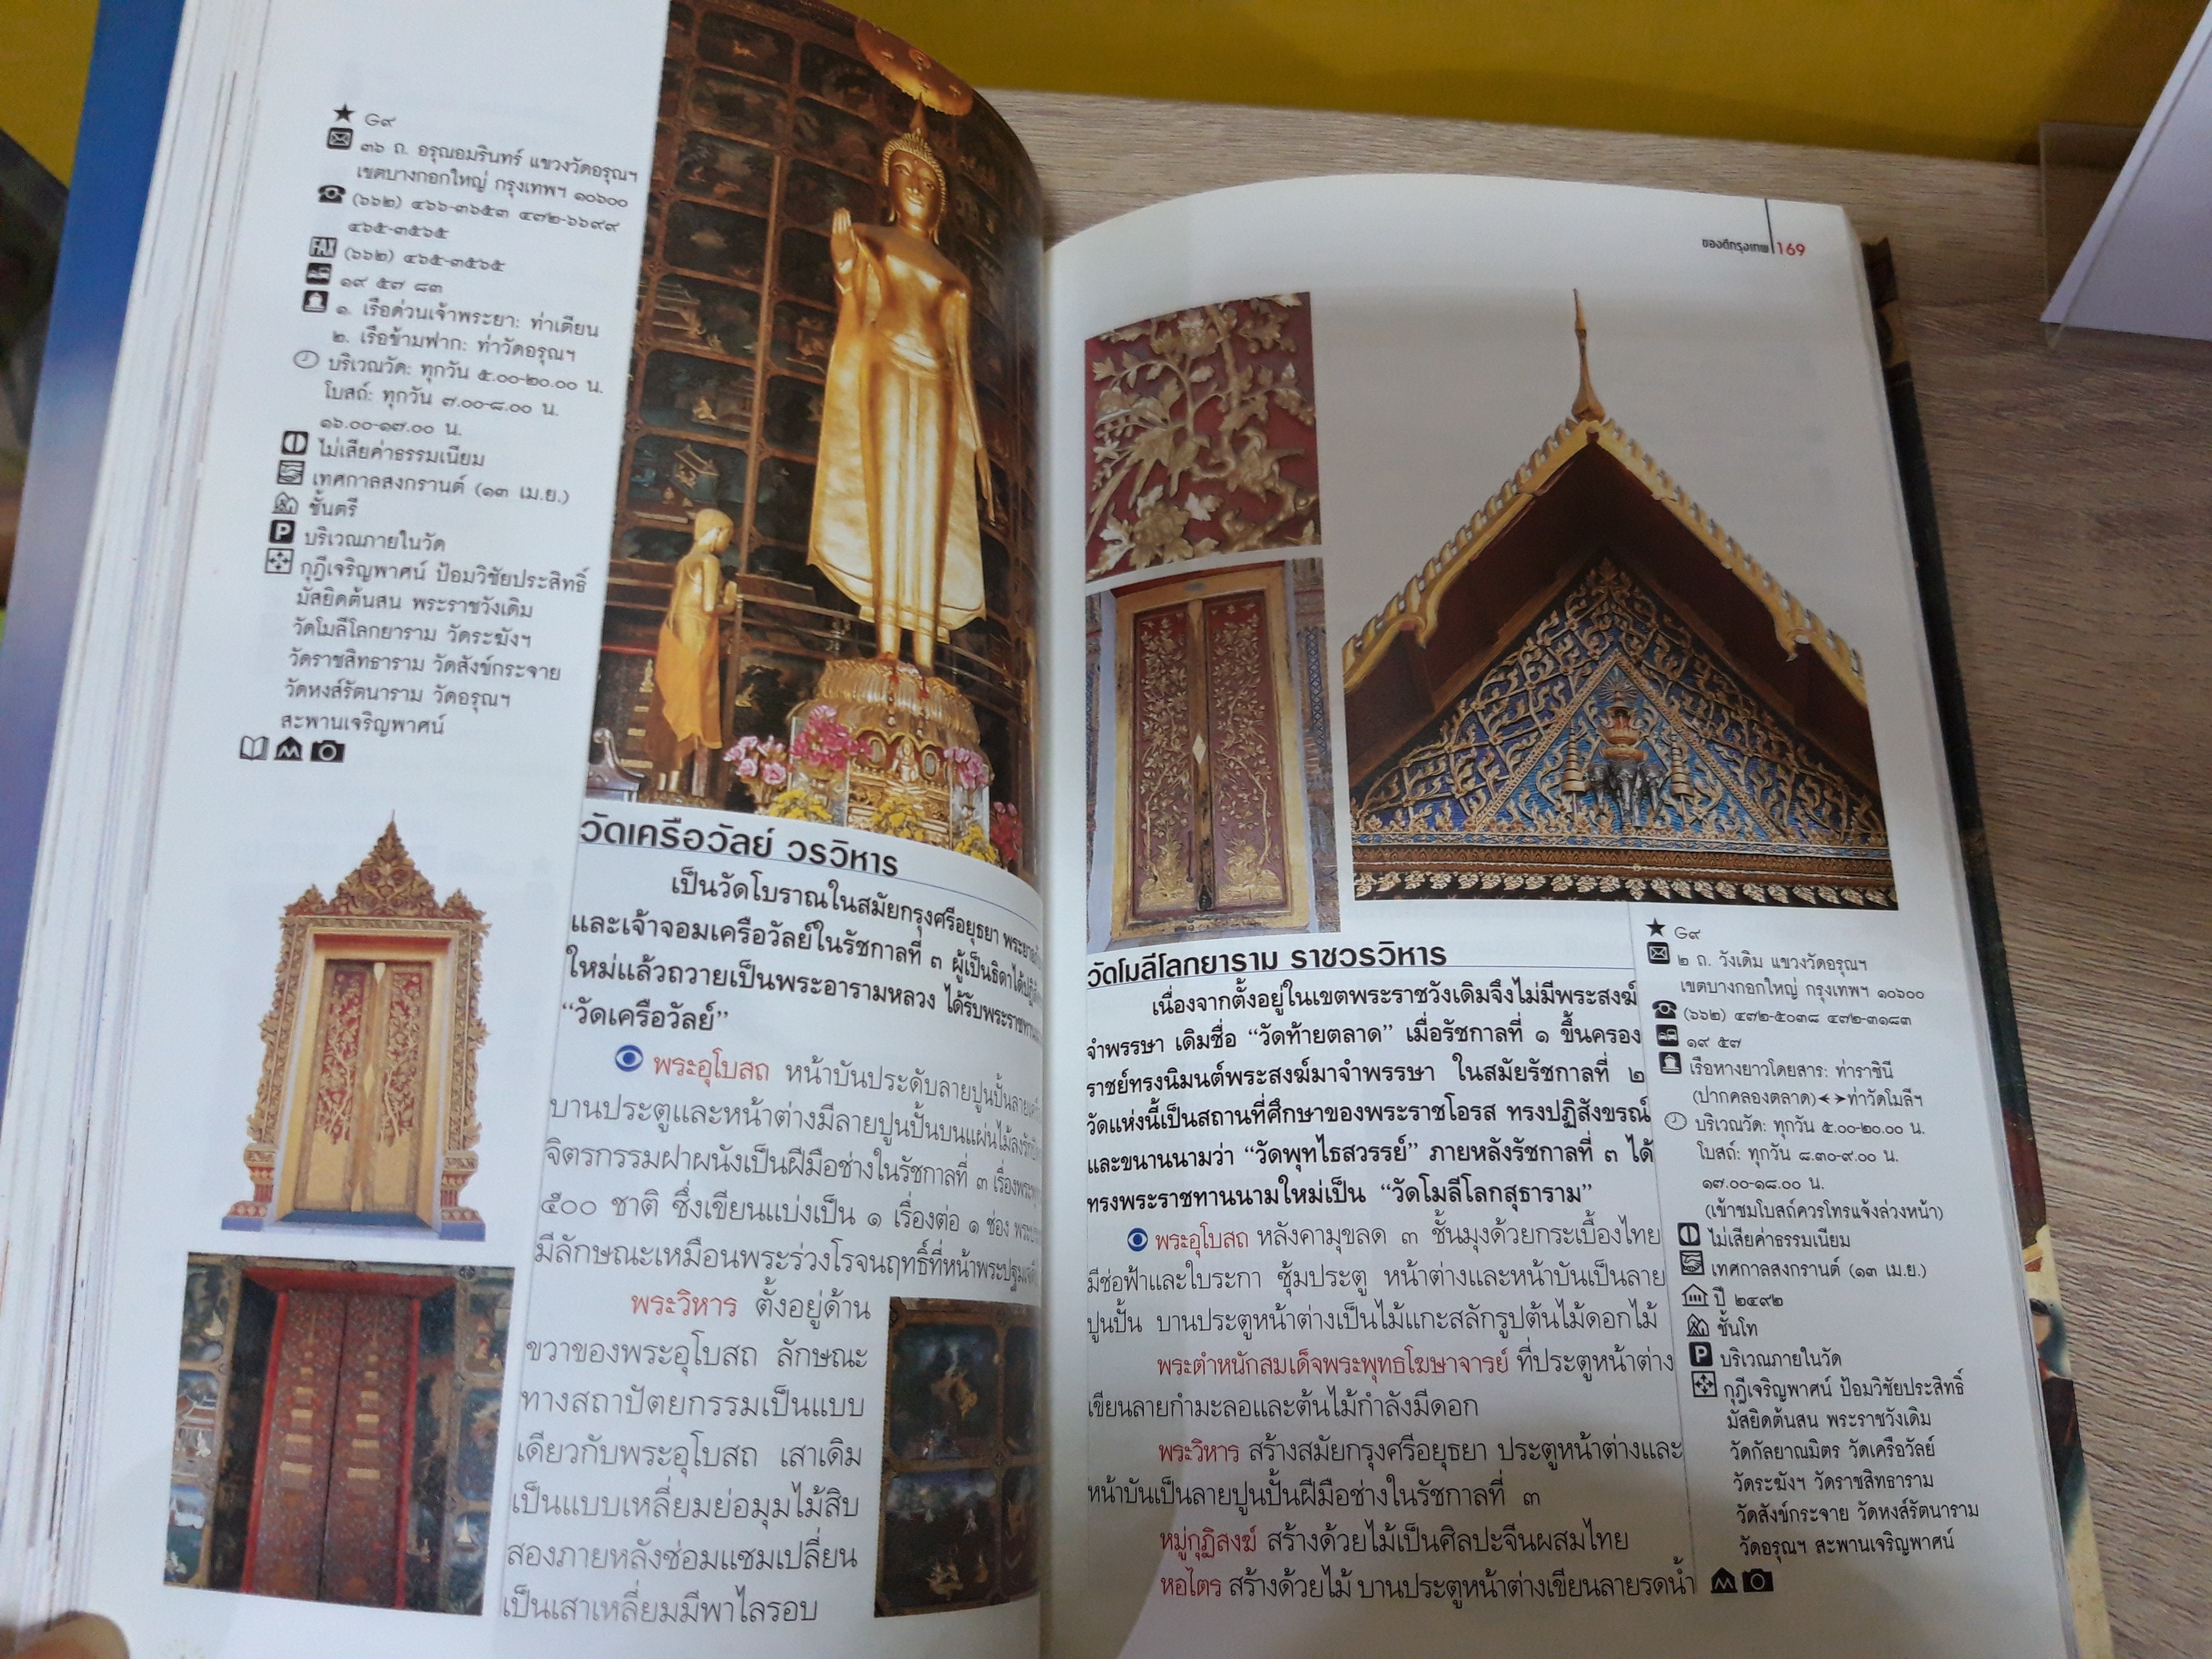 G๙
๓๖ ถ. อรุณอมรินทร์ แขวงวัดอรุณฯ
เขตบางกอกใหญ่ กรุงเทพฯ ๑๐๖๐๐
(๖๖๒) ๔๖๖-๓๖๕๓ ๔๗๒-๖๖๙๙
๔๖๕-๓๕๖๕
FAX (๖๖๒) ๔๖๕-๓๕๖๕
๑๙ ๕๗ ๘๓
๑. เรือด่วนเจ้าพระยา: ท่าเตียน
๒. เรือข้ามฟาก: ท่าวัดอรุณฯ
บริเวณวัด: ทุกวัน ๕.๐๐-๒๐.๐๐ น.
โบสถ์: ทุกวัน ๗.๐๐-๘.๐๐ น.
๑๖.๐๐-๑๗.๐๐ น.
ไม่เสียค่าธรรมเนียม
เทศกาลสงกรานต์ (๑๓ เม.ย.)
ชั้นตรี
P บริเวณภายในวัด
กุฎีเจริญพาศน์ ป้อมวิชัยประสิทธิ์
มัสยิดต้นสน พระราชวังเดิม
วัดโมลีโลกยาราม วัดระฆังฯ
วัดราชสิทธาราม วัดสังข์กระจาย
วัดหงส์รัตนาราม วัดอรุณฯ
สะพานเจริญพาศน์
วัดเครือวัลย์ วรวิหาร
เป็นวัดโบราณในสมัยกรุงศรีอยุธยา
และเจ้าจอมเครือวัลย์ในรัชกาลที่ ๓ ผู้เป็นธิดาได้
ใหม่แล้วถวายเป็นพระอารามหลวง ได้รับพระราชทาน
“วัดเครือวัลย์”
พระอุโบสถ หน้าบันประดับลายปูนปั้น
บานประตูและหน้าต่างมีลายปูนปั้นบนแผ่นไม้
จิตรกรรมฝาผนังเป็นฝีมือช่างในรัชกาลที่ ๓
๕๐๐ ชาติ ซึ่งเขียนแบ่งเป็น ๑ เรื่องต่อ ๑ ช่อง
มีลักษณะเหมือนพระร่วงโรจนฤทธิ์ที่หน้า
พระวิหาร ตั้งอยู่ด้าน
ขวาของพระอุโบสถ ลักษณะ
ทางสถาปัตยกรรมเป็นแบบ
เดียวกับพระอุโบสถ เสาเดิม
เป็นแบบเหลี่ยมย่อมุมไม้สิบ
สองภายหลังซ่อมแซมเปลี่ยน
เป็นเสาเหลี่ยมมีพาไลรอบ
ของดีกรุงเทพ 169
วัดโมลีโลกยาราม ราชวรวิหาร
เนื่องจากตั้งอยู่ในเขตพระราชวังเดิมจึงไม่มีพระสงฆ์
จำพรรษา เดิมชื่อ “วัดท้ายตลาด” เมื่อรัชกาลที่ ๑ ขึ้นครอง
ราชย์ทรงนิมนต์พระสงฆ์มาจำพรรษา ในสมัยรัชกาลที่ ๒
วัดแห่งนี้เป็นสถานที่ศึกษาของพระราชโอรส ทรงปฏิสังขรณ์
และขนานนามว่า “วัดพุทไธสวรรย์” ภายหลังรัชกาลที่ ๓ ได้
ทรงพระราชทานนามใหม่เป็น “วัดโมลีโลกสุธาราม”
พระอุโบสถ หลังคามุขลด ๓ ชั้นมุงด้วยกระเบื้องไทย
มีช่อฟ้าและใบระกา ซุ้มประตู หน้าต่างและหน้าบันเป็นลาย
ปูนปั้น บานประตูหน้าต่างเป็นไม้แกะสลักรูปต้นไม้ดอกไม้
พระตำหนักสมเด็จพระพุทธโฆษาจารย์ ที่ประตูหน้าต่าง
เขียนลายกำมะลอและต้นไม้กำลังมีดอก
พระวิหาร สร้างสมัยกรุงศรีอยุธยา ประตูหน้าต่างและ
หน้าบันเป็นลายปูนปั้นฝีมือช่างในรัชกาลที่ ๓
หมู่กุฏิสงฆ์ สร้างด้วยไม้เป็นศิลปะจีนผสมไทย
หอไตร สร้างด้วยไม้ บานประตูหน้าต่างเขียนลายรดน้ำ
G๙
๒ ถ. วังเดิม แขวงวัดอรุณฯ
เขตบางกอกใหญ่ กรุงเทพฯ ๑๐๖๐๐
(๖๖๒) ๔๗๒-๕๐๓๘ ๔๗๒-๓๑๘๓
๑๙ ๕๗
เรือหางยาวโดยสาร: ท่าราชินี
(ปากคลองตลาด)<->ท่าวัดโมลีฯ
บริเวณวัด: ทุกวัน ๕.๐๐-๒๐.๐๐ น.
โบสถ์: ทุกวัน ๘.๓๐-๙.๐๐ น.
๑๗.๐๐-๑๘.๐๐ น.
(เข้าชมโบสถ์ควรโทรแจ้งล่วงหน้า)
ไม่เสียค่าธรรมเนียม
เทศกาลสงกรานต์ (๑๓ เม.ย.)
ปี ๒๔๙๒
ชั้นโท
P บริเวณภายในวัด
กุฎีเจริญพาศน์ ป้อมวิชัยประสิทธิ์
มัสยิดต้นสน พระราชวังเดิม
วัดกัลยาณมิตร วัดเครือวัลย์
วัดระฆังฯ วัดราชสิทธาราม
วัดสังข์กระจาย วัดหงส์รัตนาราม
วัดอรุณฯ สะพานเจริญพาศน์